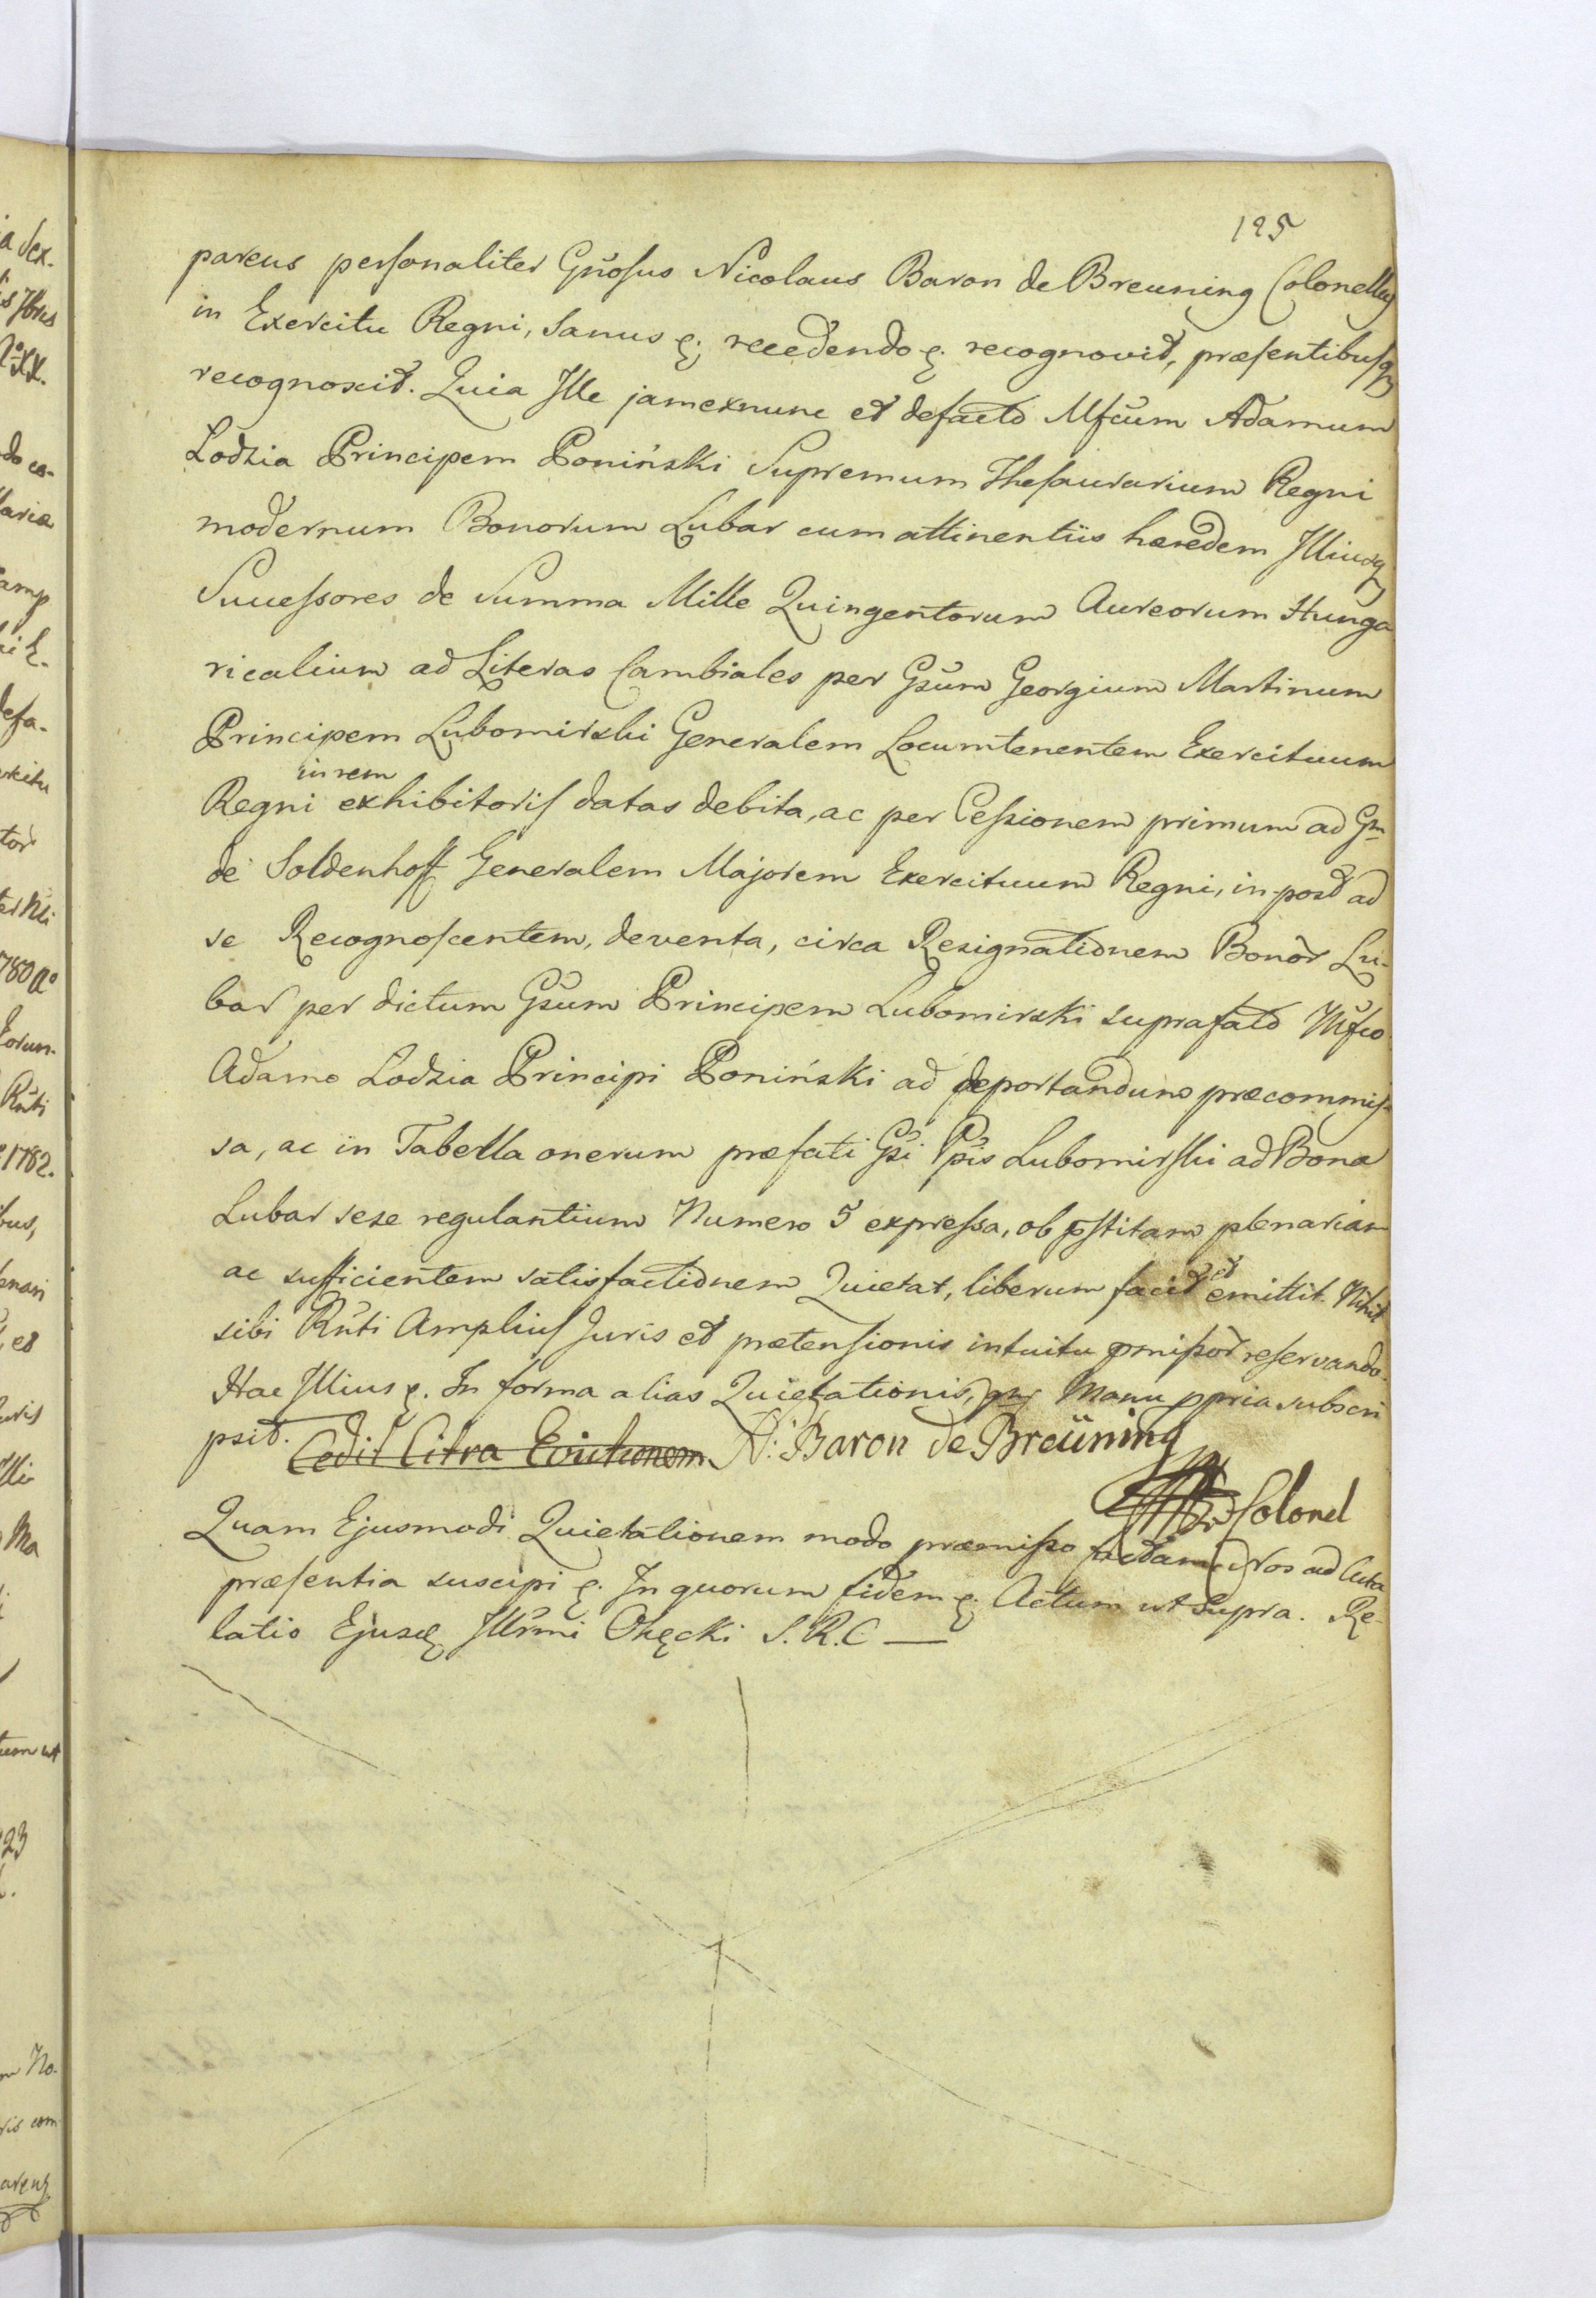 125
pareus personaliter Gnosus Nicolaus Baron de Breuning Colonellus
in Exercitu Regni, Sanus &; recedendo &. recognovit, præsentibusq
recognoscit. Quia Ille jamexnunc et defacto Mfcum Adamum
Lodzia Principem Poniński Supremum Thesaurarium Regni
modernum Bonorum Lubar cum attinentiis hæredem Illiusq
Successores de Summa Mille Quingentorum Aureorum Hunga
ricalium ad Literas Cambiales per Gsum Georgium Martinum
Principem Lubomirski Generalem Locumtenentem Exercituum
in rem
Regni exhibitoris datas debita, ac per Cessionem primum ad Gm
de Soldenhoff Generalem Majorem Exercituum Regni, in-post ad
se Recognoscentem, deventa, circa Resignationem Bonor Lu-
bar per dictum Gsum Principem Lubomirski suprafato Mfco
Adamo Lodzia Principi Poniński ad deportandum præcommis-
sa, ac in Tabella onerum præfati Gsi Ppis Lubomirski ad Bona
Lubar sese regulantium Numero 5 expressa, ob pstitam plenariam
ac sufficientem satisfactionem Quietat, liberum facit et emittit. Nihil
sibi Rnti Amplius Juris et prætensionis intuitu pmissor reservando.
Hac Illius &. In forma alias Quietationis, qm Manu ppria subscri
psit. Cedit Citra Evictionem N: Baron de Breüning
Colonel
Quam Ejusmodi Quietationem modo præmisso factam Nos ad Acta
præsentia suscipi &. In quorum fidem &. Actum ut Supra. Re-
latio Ejusd Illrmi Okęcki S. R. C —